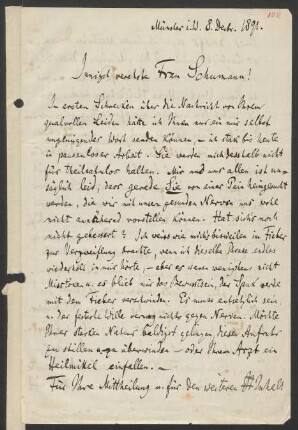 Münster i. W. 8. Decbr. 1891.
Innigst verehrte Frau Schumann!
Im ersten Schrecken über die Nachricht von Ihrem
qualvollen Leiden hätte ich Ihnen nur ein mir selbst
ungenügender Wort senden können, – ich stak bis heute
in pausenloser Arbeit. Sie werden mich deshalb nicht
für theilnahmlos halten. Mir und uns allen ist un-
säglich leid, dass gerade Sie von einer Pein heimgesucht
werden, die wir mit unsern gesunden Nerven uns wohl
nicht annähernd vorstellen können. Hat sich's noch
nicht gebessert? Ich weiss wie mich's bisweilen im Fieber
zur Verzweiflung brachte, wenn ich dieselbe Phrase endlos
wiederholt in mir hörte, – aber es waren wenigstens nicht
Misstöne u. es blieb mir das Bewusstsein, der Spuk werde
mit dem Fieber verschwinden. Es muss entsetzlich sein
u. der festeste Wille vermag nichts gegen Nerven. Möchte
Ihrer starken Natur baldigst gelingen, diesen Aufruhr
zu stillen u. zu überwinden – oder Ihrem Arzt ein
Heilmittel einfallen. –
Für Ihre Mittheilung u. für den weiteren Inhalt